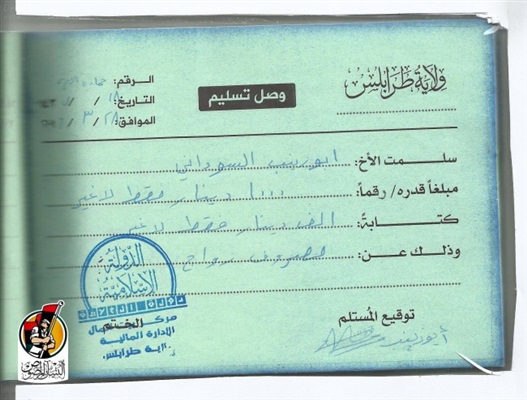 ولاية طرابلس
الرقم:
التاريخ: ١٨ / /
وصل تسليم
الموافق: ٢٨ / ٣ /
سلمت الأخ: ابو زينب السوداني
مبلغاً قدره/ رقماً: ١٠٠٠ دينار فقط لا غير
كتابةً: الف دينار فقط لا غير
وذلك عن: مصروف زواج
الدولة
الإسلامية
مركز
الإدارة المالية
ولاية طرابلس
توقيع المُستلم
أبو زينب
البنيان المرصوص